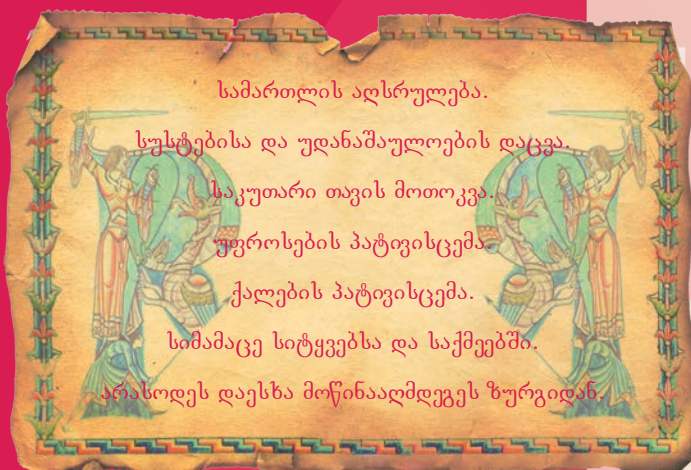 სამართლის აღსრულება.
სუსტებისა და უდანაშაულოების დაცვა.
საკუთარი თავის მოთოკვა.
უფროსების პატივისცემა.
ქალების პატივისცემა.
სიმამაცე სიტყვებსა და საქმეებში.
არასოდეს დაესხა მოწინააღმდეგეს ზურგიდან.